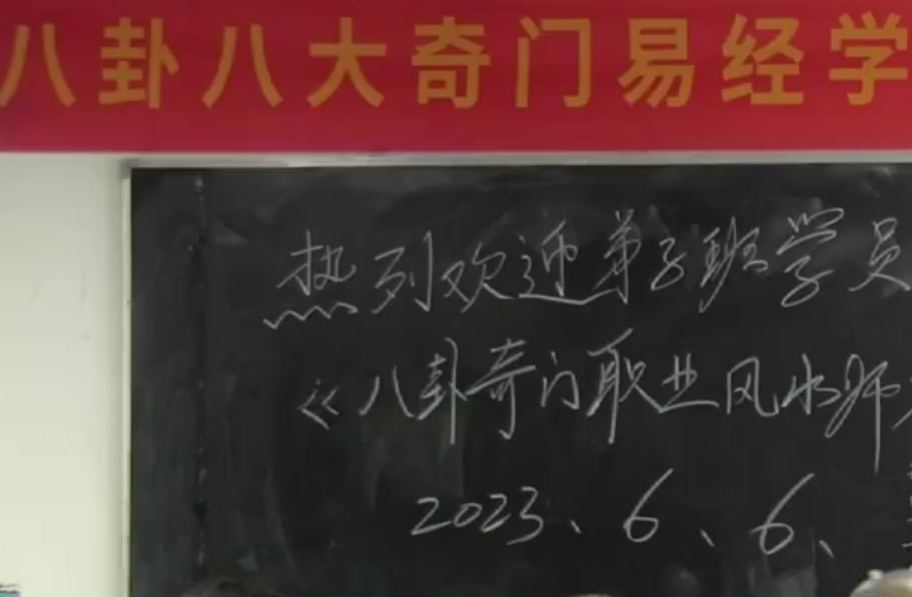 八卦八大奇门易经学
热烈欢迎弟子班学员
《八卦奇门职业风水师
2023、6、6、